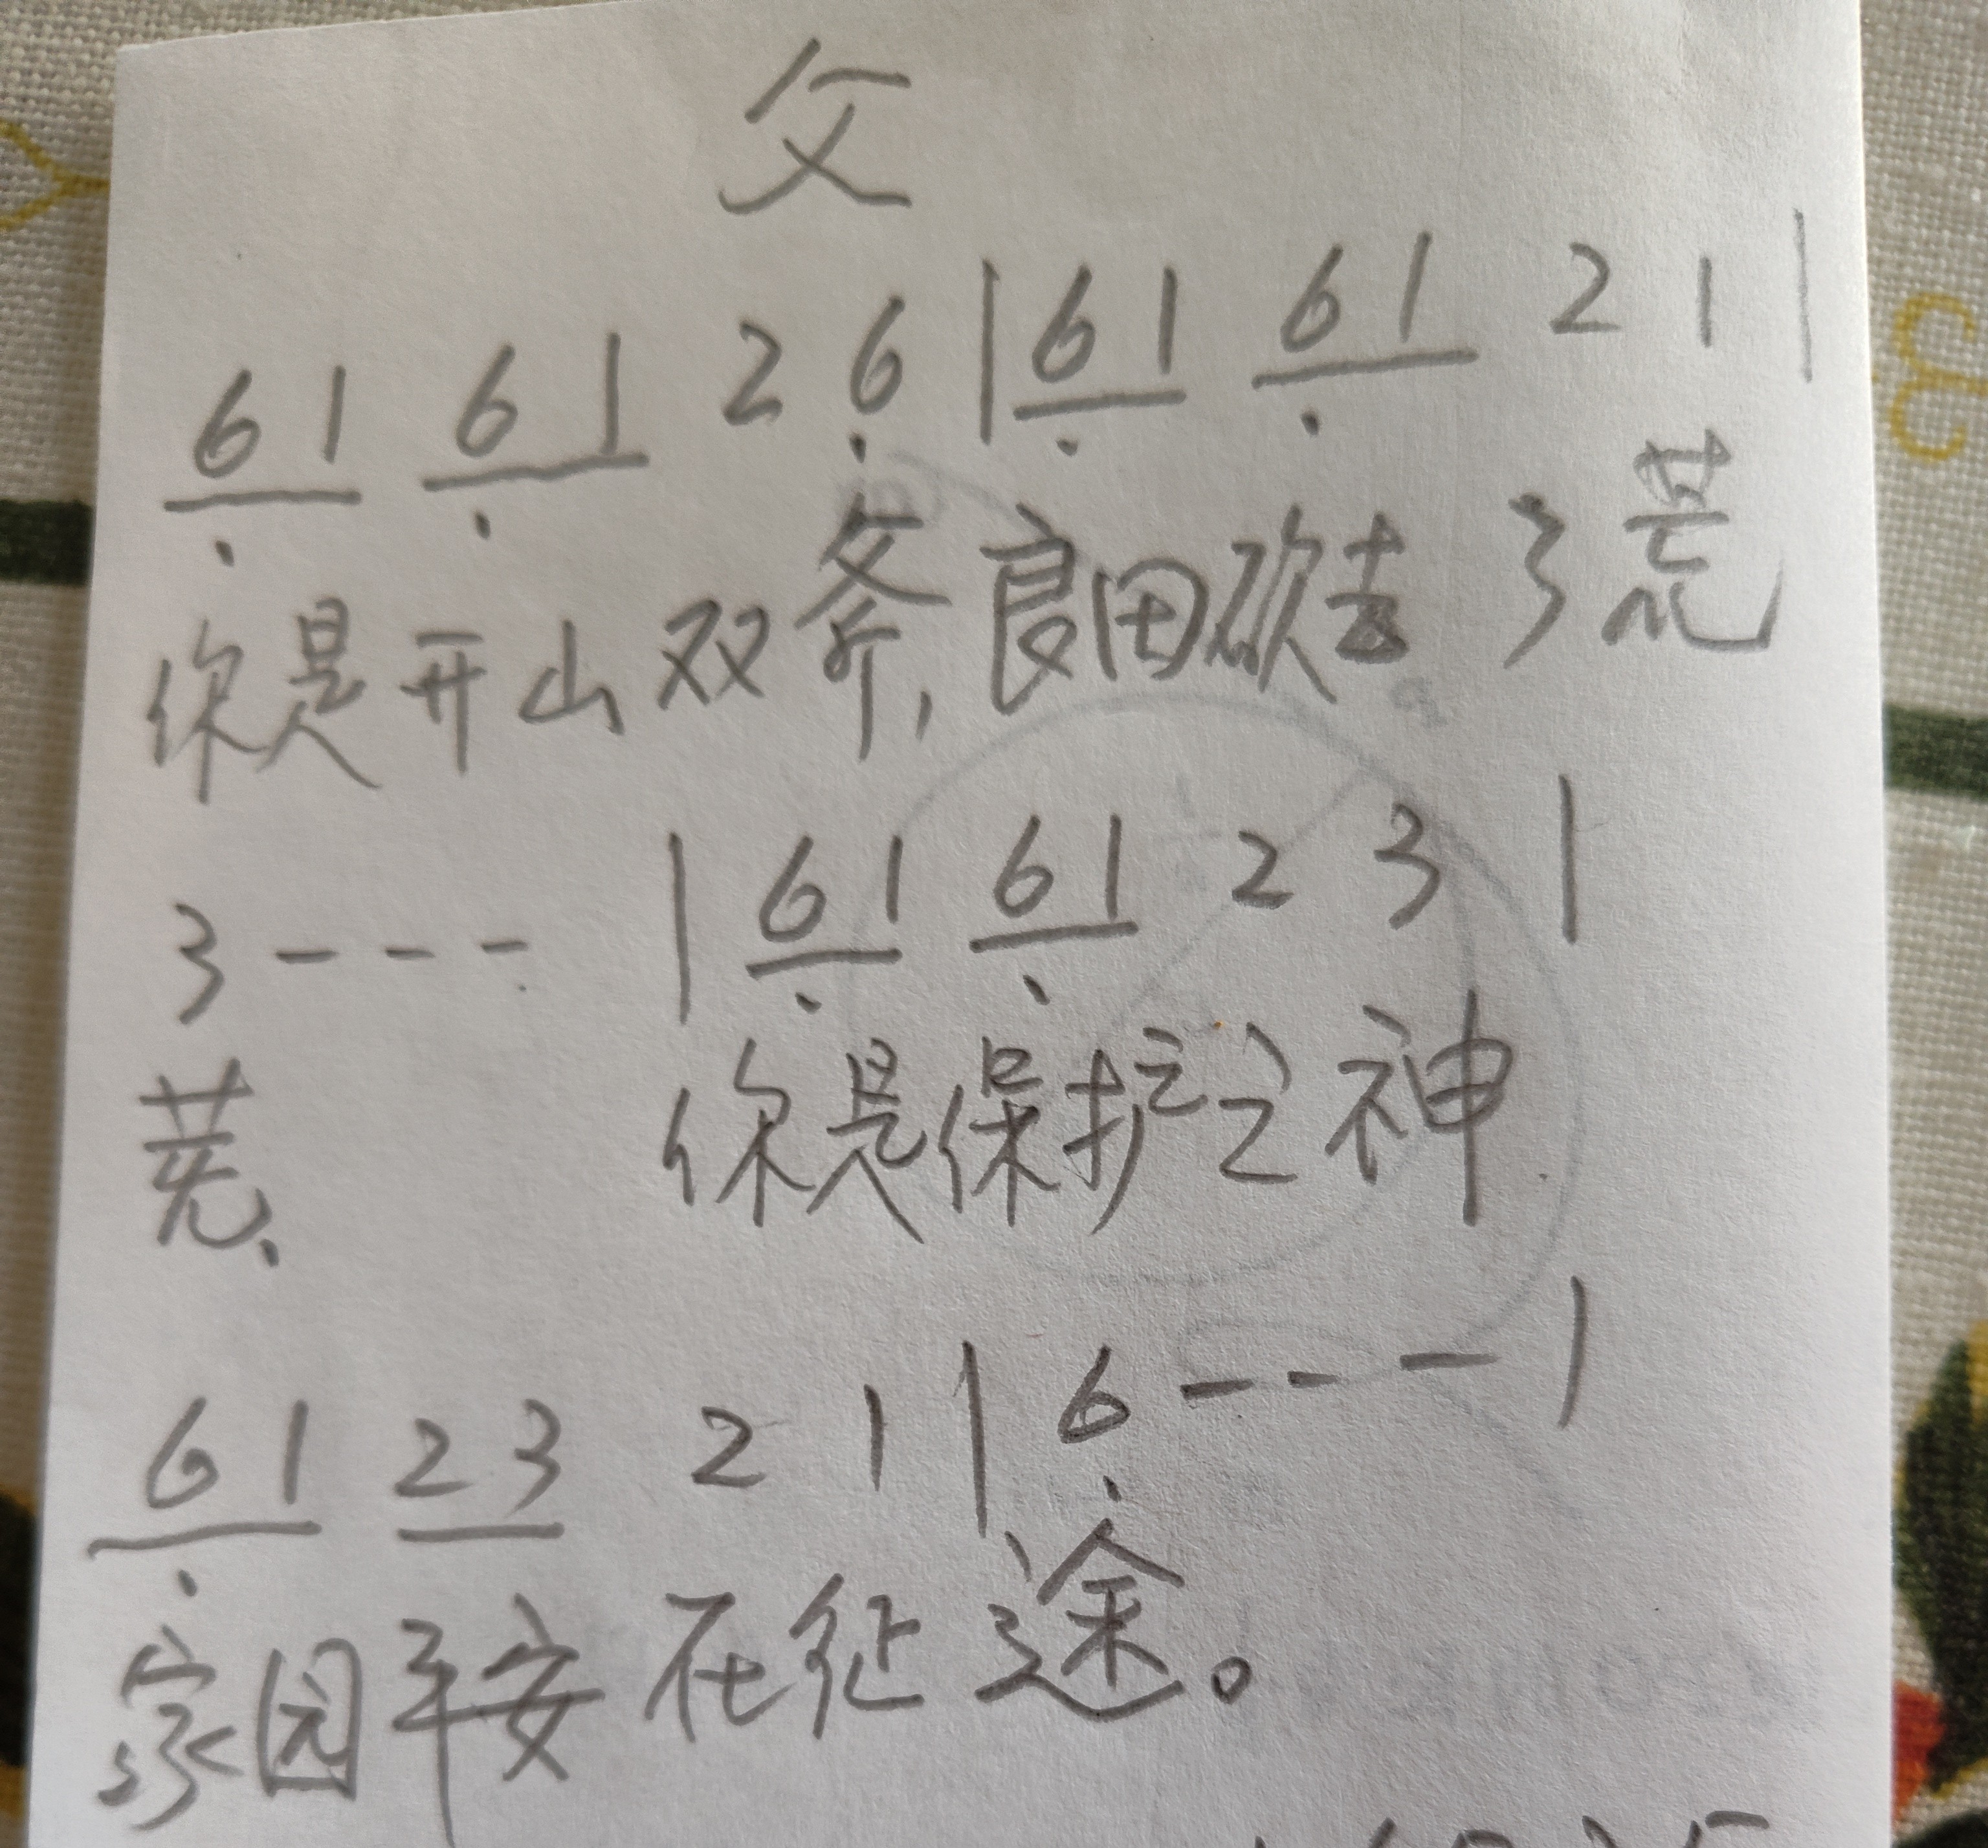 父
61 61 2 6 | 61 61 2 1 |
你是开山双斧,良田砍去了荒
3 - - - | 61 61 2 3 |
芜、 你是保护之神
61 23 2 1 | 6 - - - |
家园平安在征途。